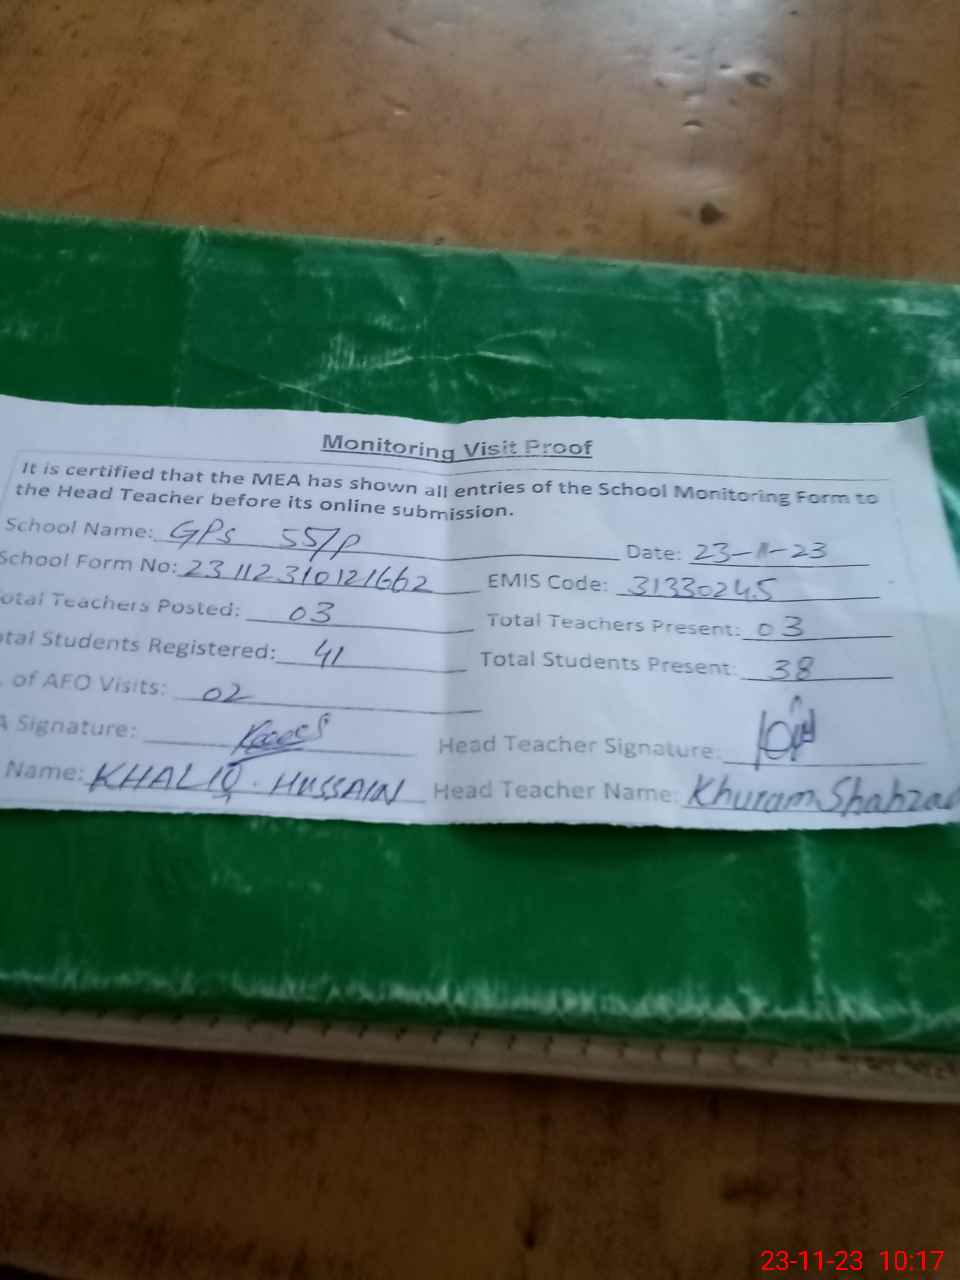 Monitoring Visit Proof
It is certified that the MEA has shown all entries of the School Monitoring Form to
the Head Teacher before its online submission.
School Name: GPS 55/P Date: 23-11-23
School Form No: 23112310121662 EMIS Code: 31330245
otal Teachers Posted: 03 Total Teachers Present: 03
otal Students Registered: 41 Total Students Present: 38
. of AFO Visits: 02
A Signature: Head Teacher Signature:
Name: KHALIQ. HUSSAIN Head Teacher Name: Khuram Shahzad
23-11-23 10:17